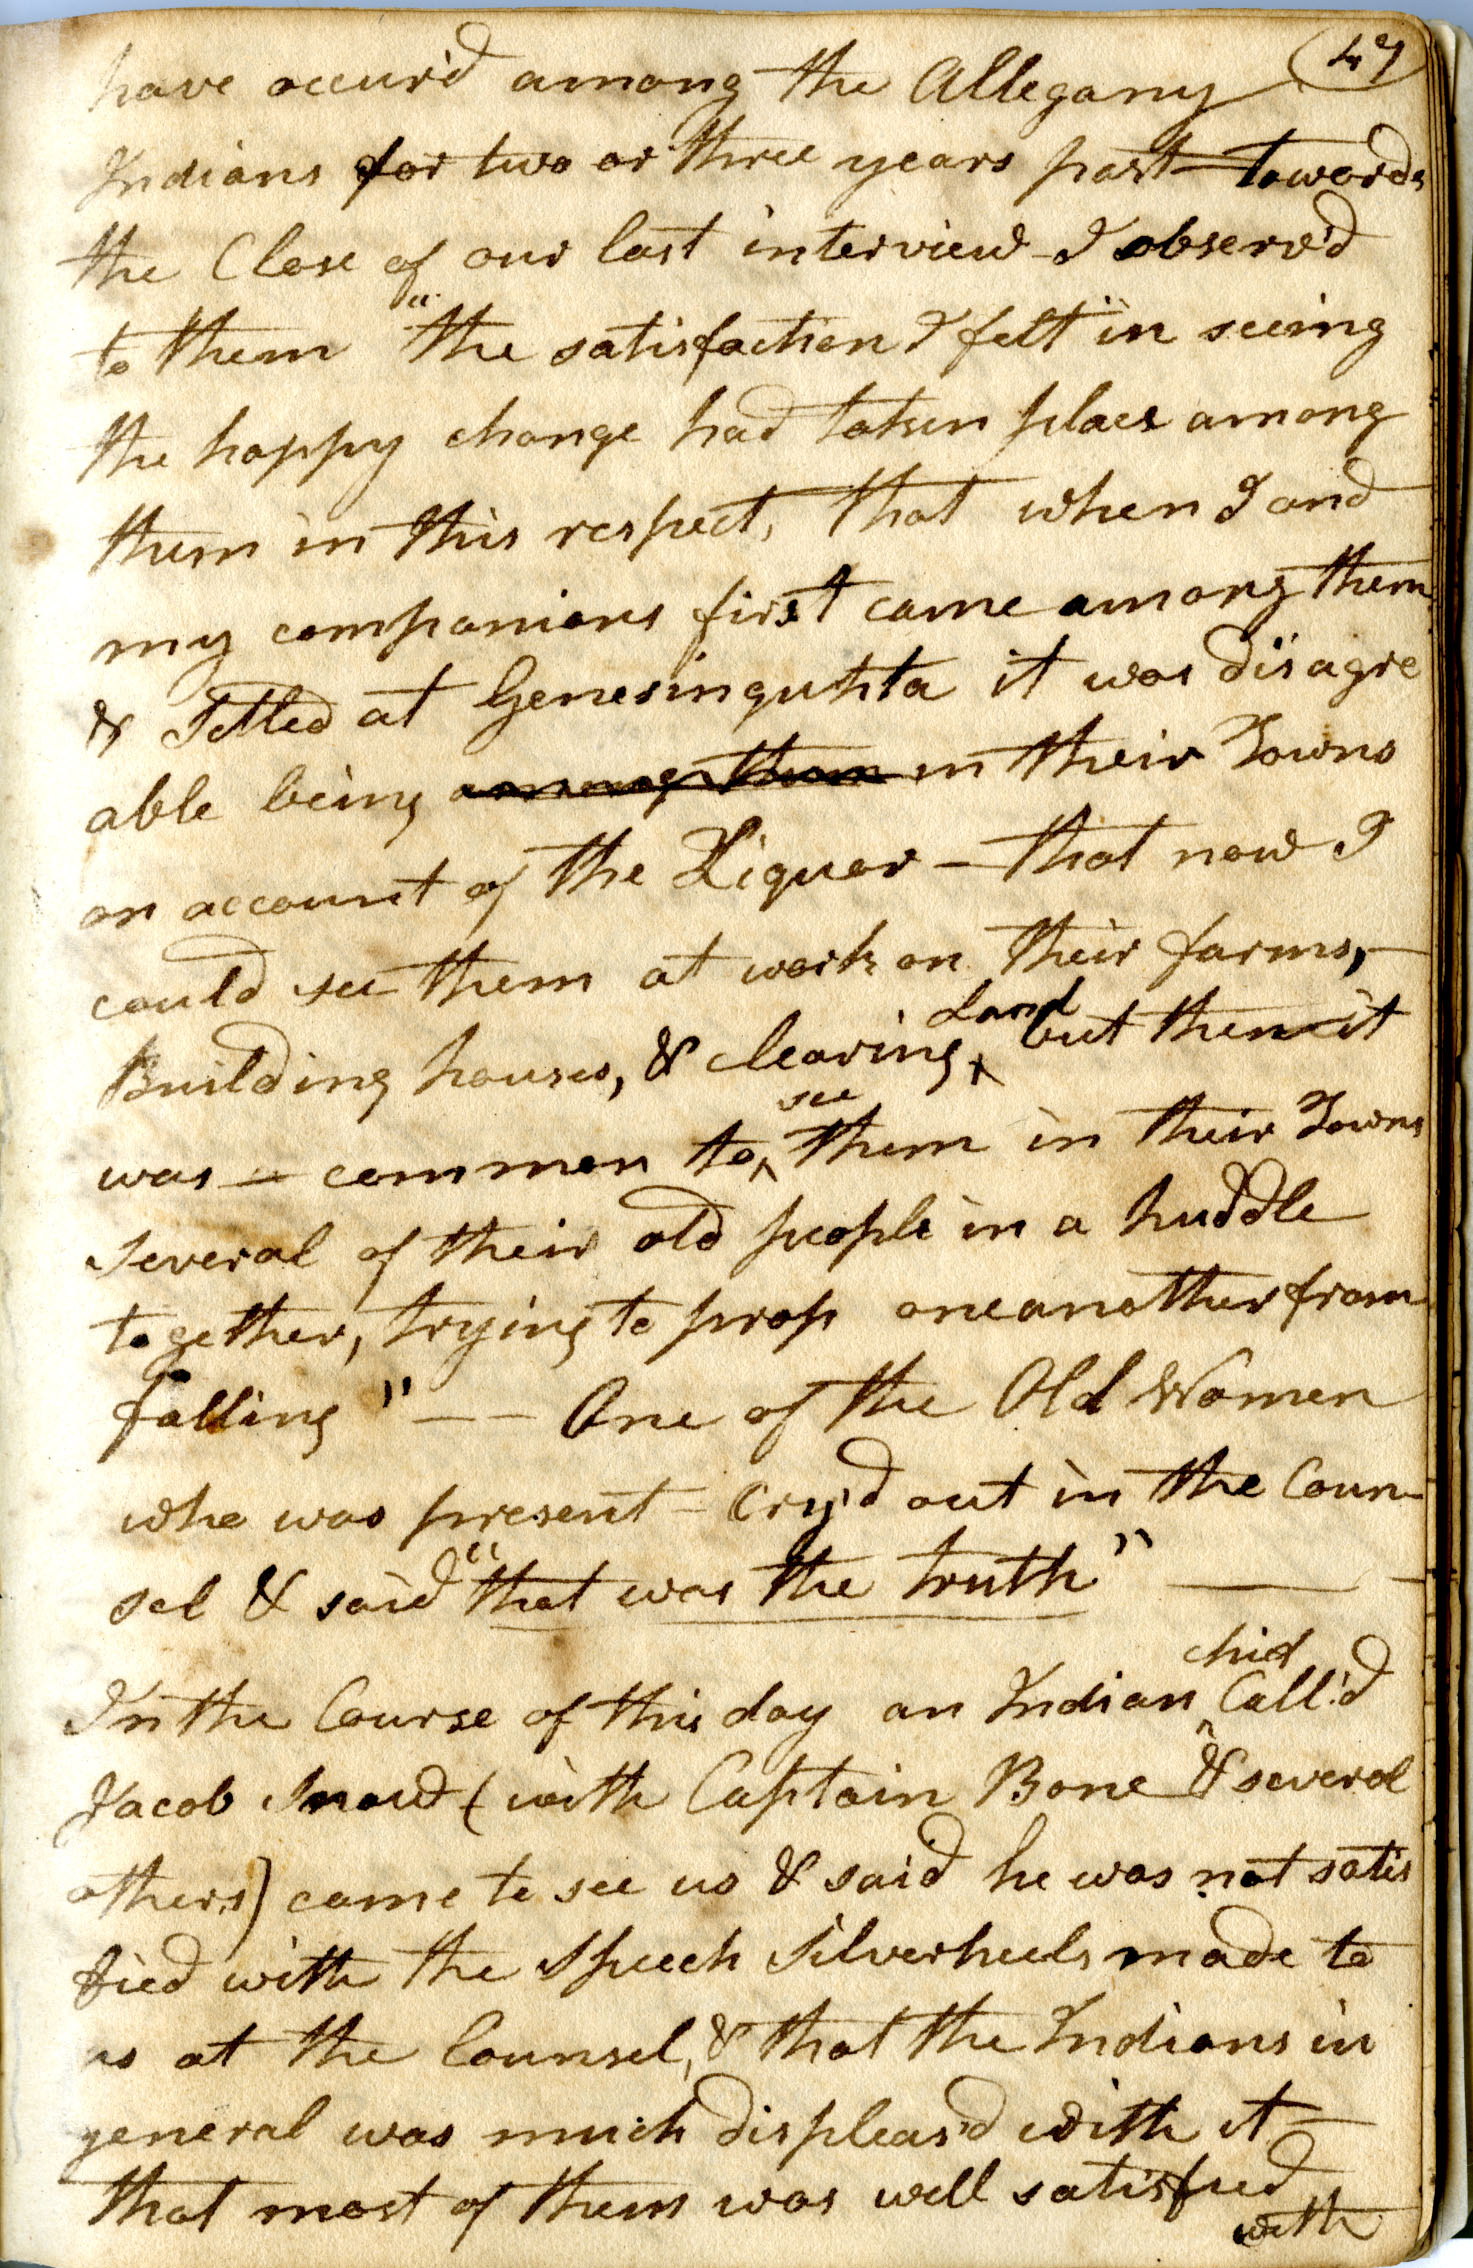 47
have occur'd among the Allegany
Indians for two or three years past - towards
the Close of our last interview I observ'd
to them "the satisfaction I felt in seeing
the happy change had taken place among
them in this respect, that when I and
my companions first came among them
& Setled at Genesinguhta it was disagre
able being among them in their Towns
on account of the Liquor - that now I
could see them at work on their farms,
Building houses, & clearing Land but then it
was - common to see them in their Towns
several of their old people in a huddle
together, trying to prop one another from
falling" -- One of the Old Women
who was present - Cry'd out in the Coun
sel & said "that was the truth" —
In the Course of this day an Indian chief Call'd
Jacob Snow (with Captain Bone & several
others) came to see us & said he was not satis
fied with the speech Silverheels made to
us at the Counsel, & that the Indians in
general was much displeas'd with it -
that most of them was well satisfied
with